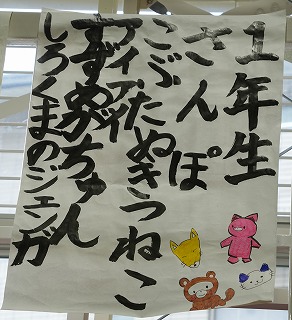 1年生
さんぽ
こぶたぬきつねこ
アイアイ
すずめがちゅん
しろくまのジェンガ